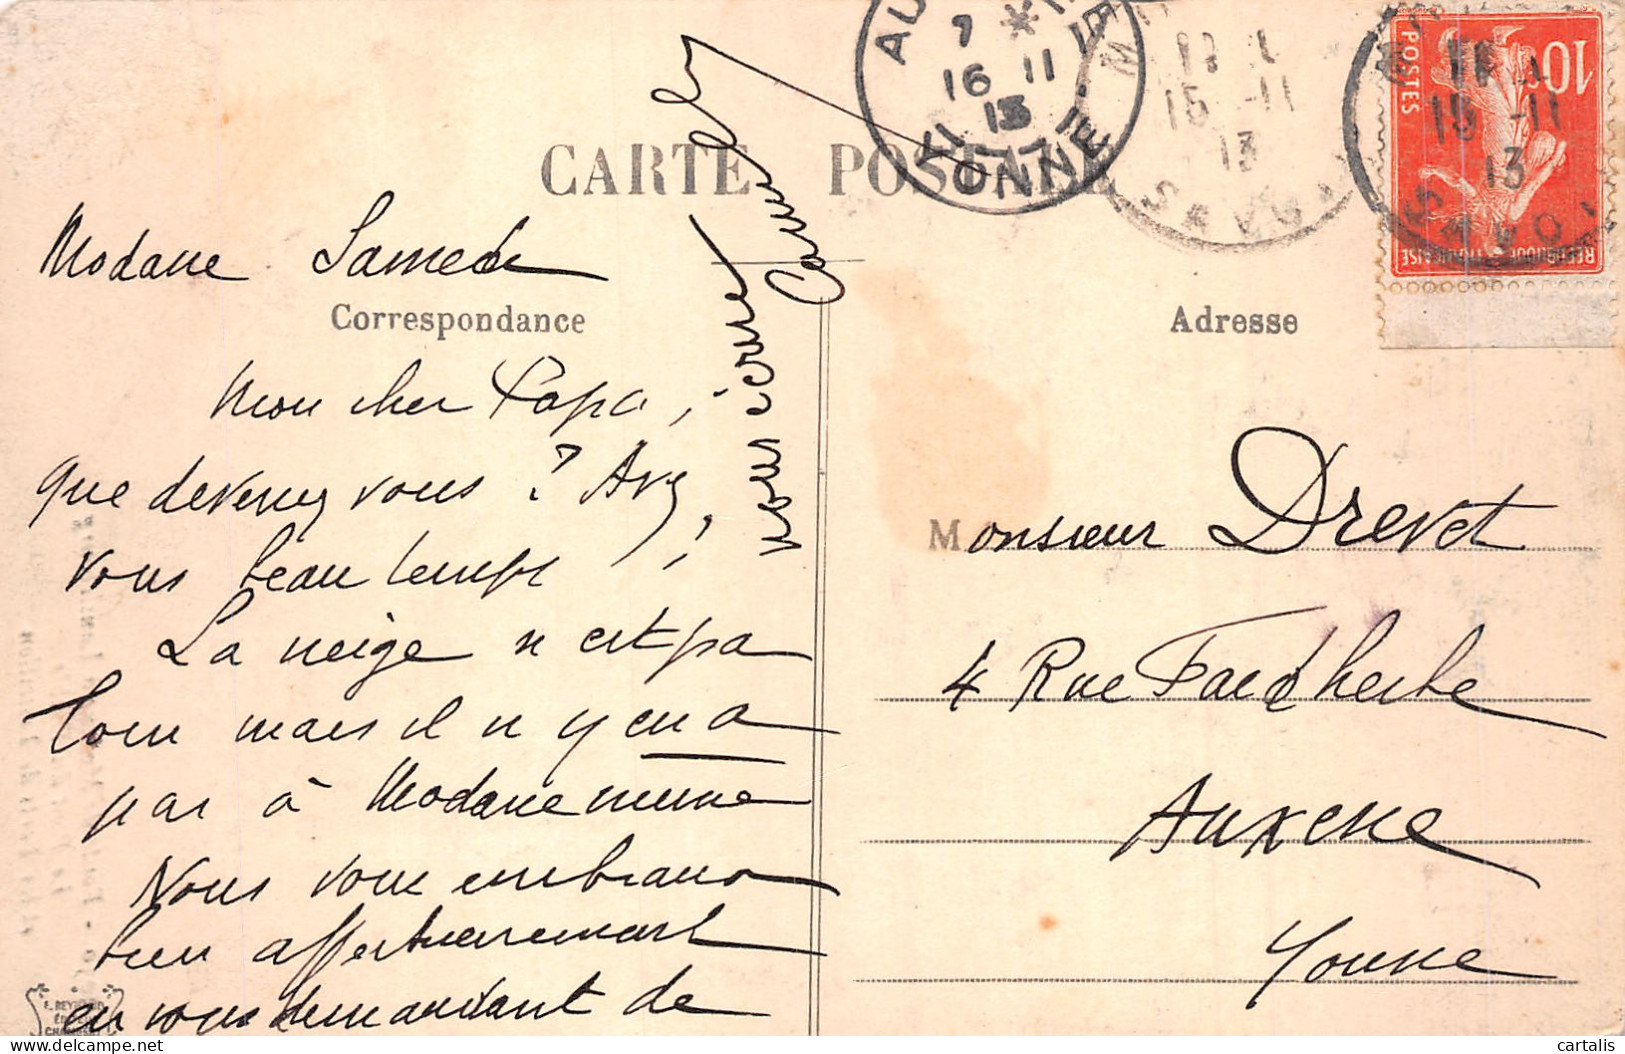 CARTE POSTALE
Modane Samedi
Correspondance
Mon cher Papa,
que devenez vous ? Avez
vous beau temps !
La neige n'est pas
loin mais il n'y en a
pas à Modane même
Nous vous embrassons
bien affectueusement
en vous demandant de
nous écrire
Camille
Adresse
Monsieur Drevet
4 Rue Faidherbe
Auxerre
Yonne
AU
7 *
16 11
13
YONNE
15 -11
13
SAVOI
15 -11
13
SAVOI
10c
POSTES
REPUBLIQUE FRANÇAISE
E. REYNAUD
cartalis
delcampe.net